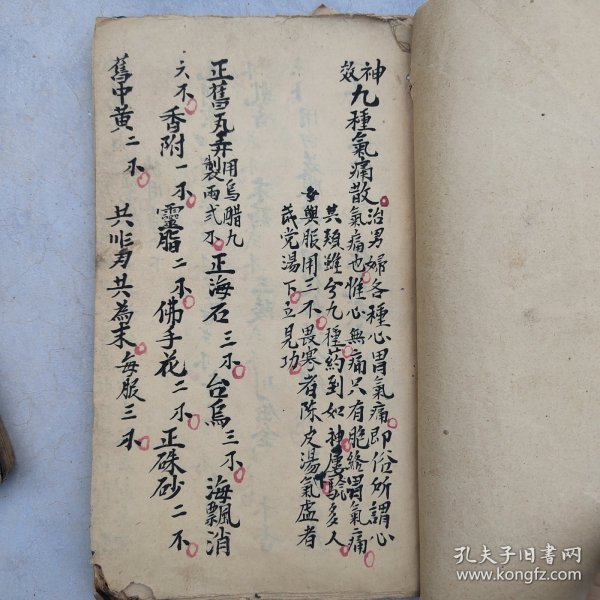 神效九種氣痛散
治男婦各種心胃氣痛即俗所謂心
氣痛也惟心無痛只有胞絡胃氣痛
其類雖分九種药到如神屢驗多人
每與服用三不畏寒者陈皮湯氣虛者
芪党湯下立見功
正舊瓦弄用烏醋九製兩弍不 正海石三不 台烏三不 海飄消
六不 香附一不 靈脂二不 佛手花二不 正硃砂二不
舊中黄二不 共為末每服三不
孔夫子旧書网
www.kongfz.com